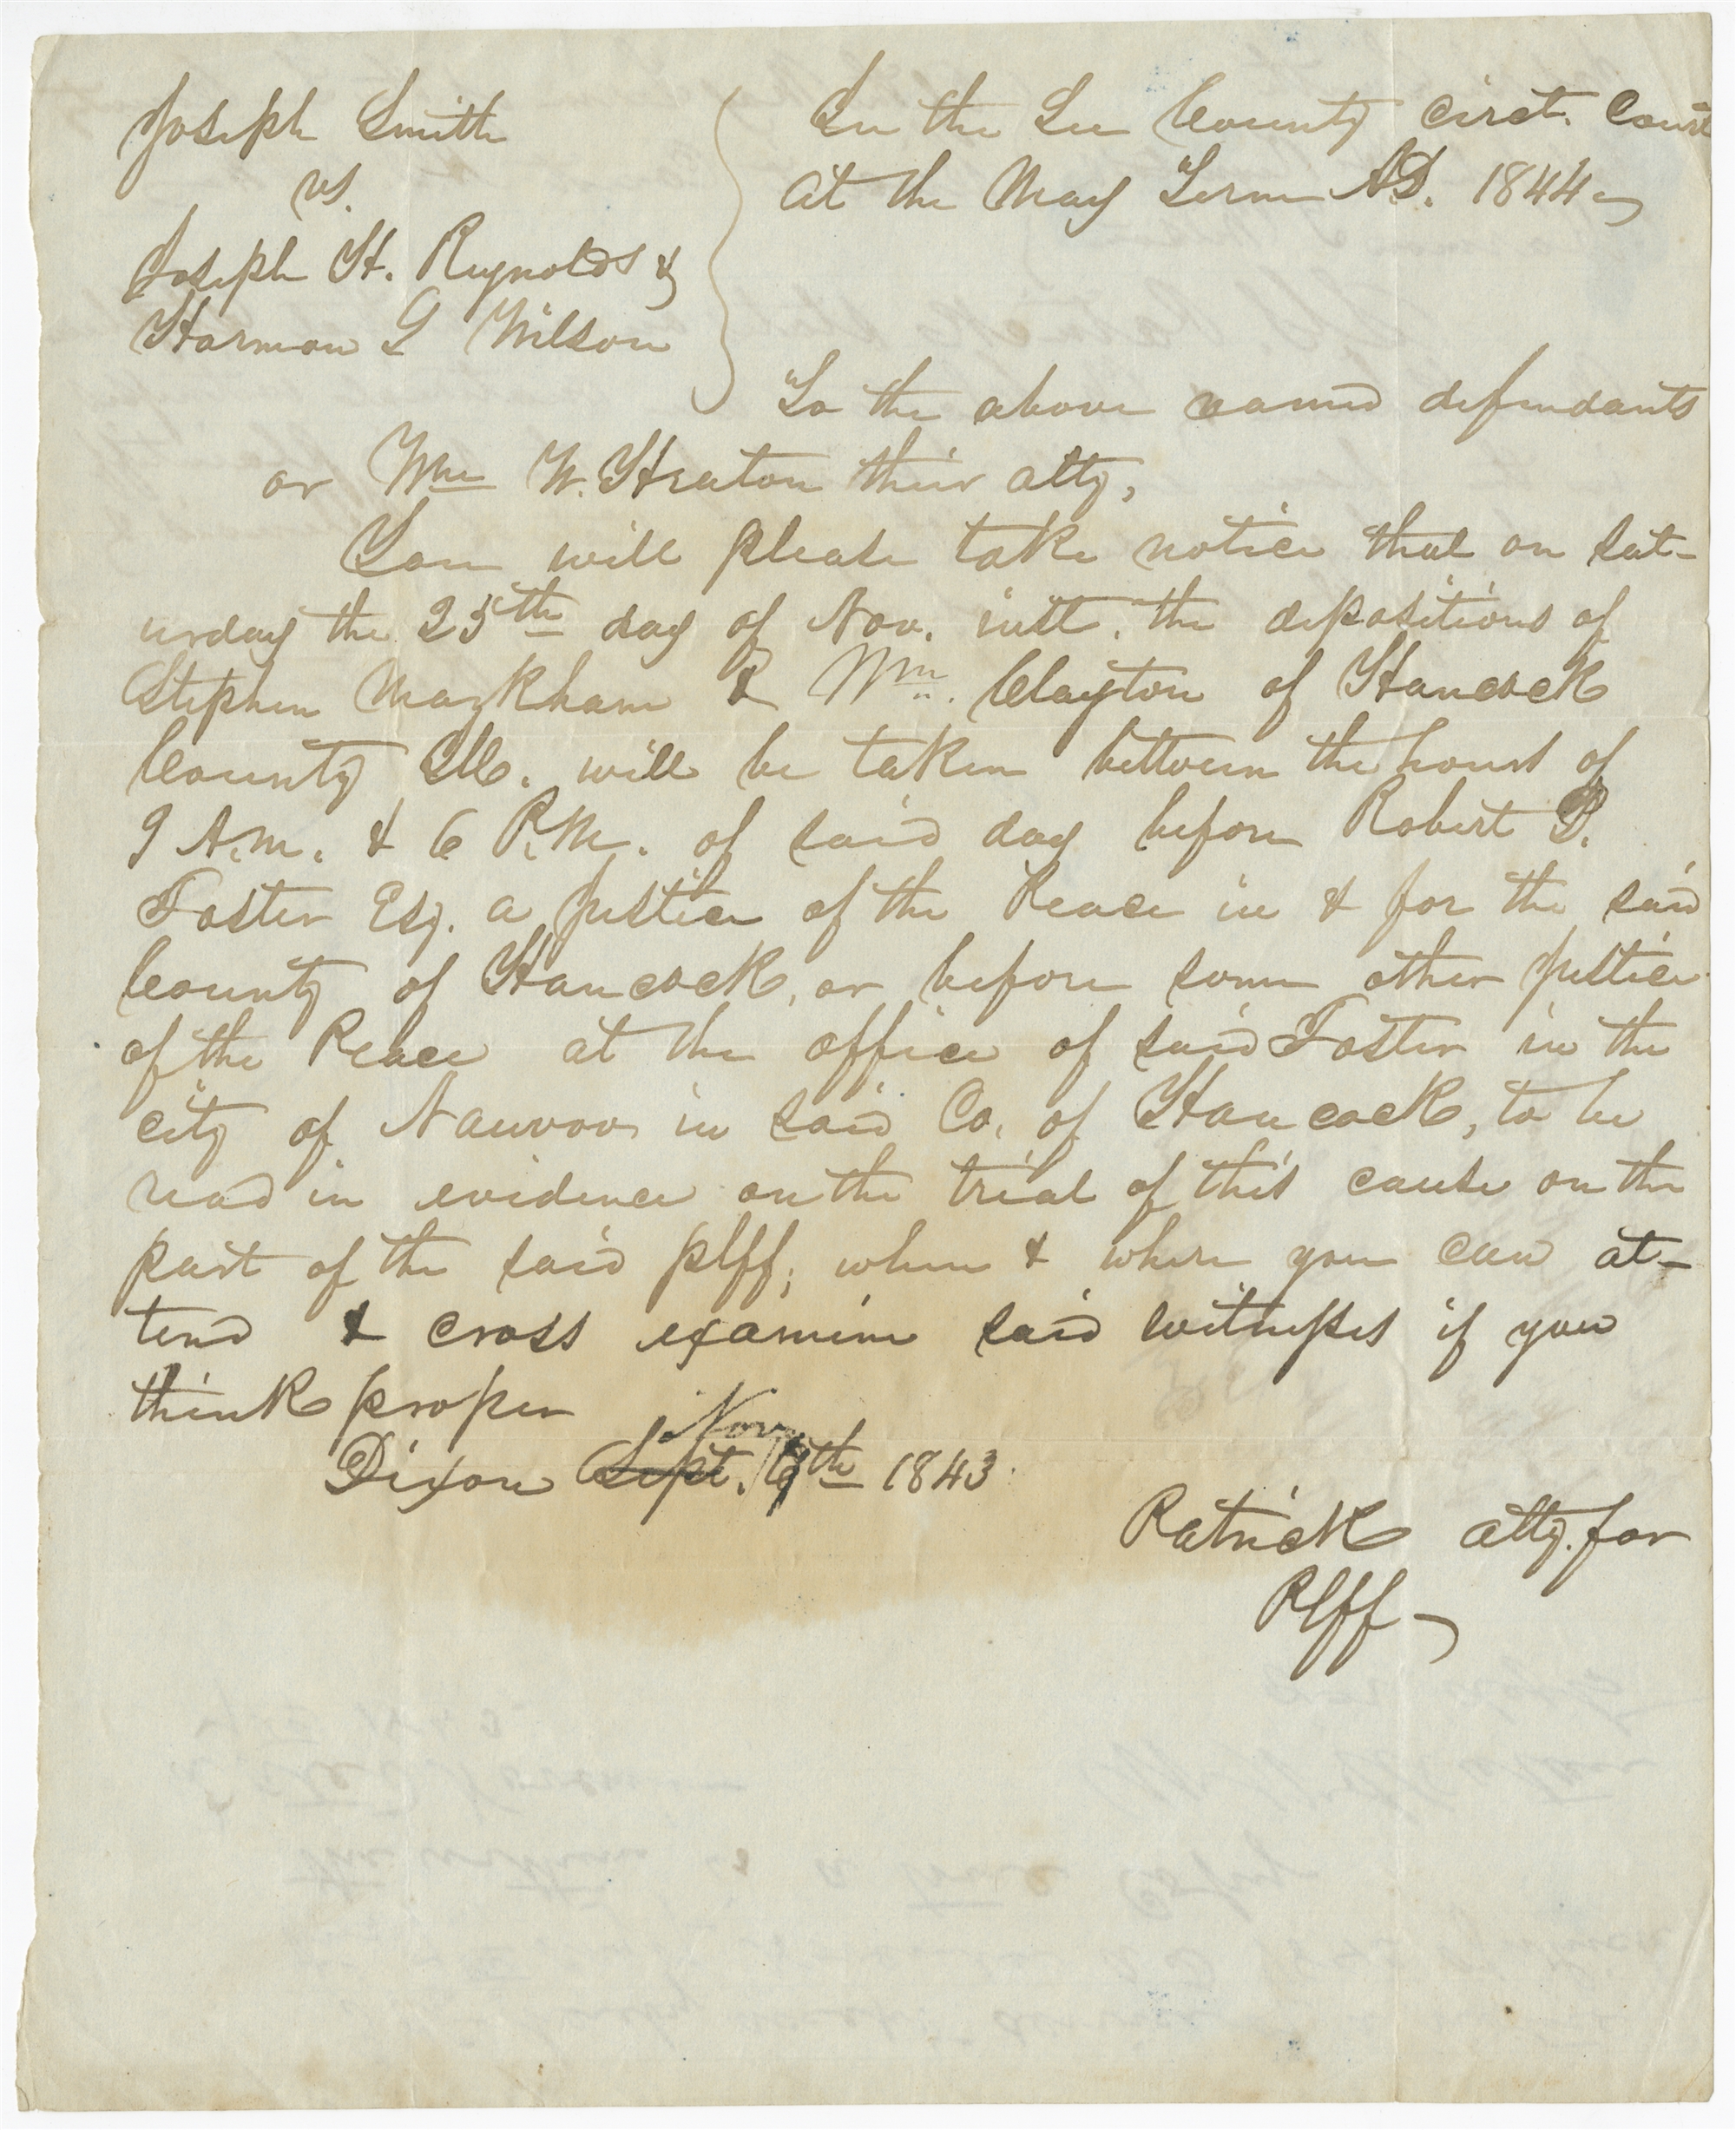 Joseph Smith
vs.
Joseph H. Reynolds &
Harmon G Wilson
In the Lee County Circt. Court
At the May Term A.D. 1844
To the above named defendants
or Wm W. Heaton their atty,
You will please take notice that on sat-
urday the 25th day of Nov. inst. the depositions of
Stephen Markham & Wm. Clayton of Hancock
County Ill. will be taken between the hours of
9 A.M. & 6 P.M. of said day before Robert D.
Foster Esq. a Justice of the Peace in & for the said
County of Hancock, or before some other Justice
of the Peace at the office of said Foster in the
city of Nauvoo in said Co. of Hancock, to be
read in evidence on the trial of this cause on the
part of the said plff, when & where you can at-
tend & cross examine said witnesses if you
think proper
Nov
Dixon Sept. th 1843
Patrick atty. for
Plff